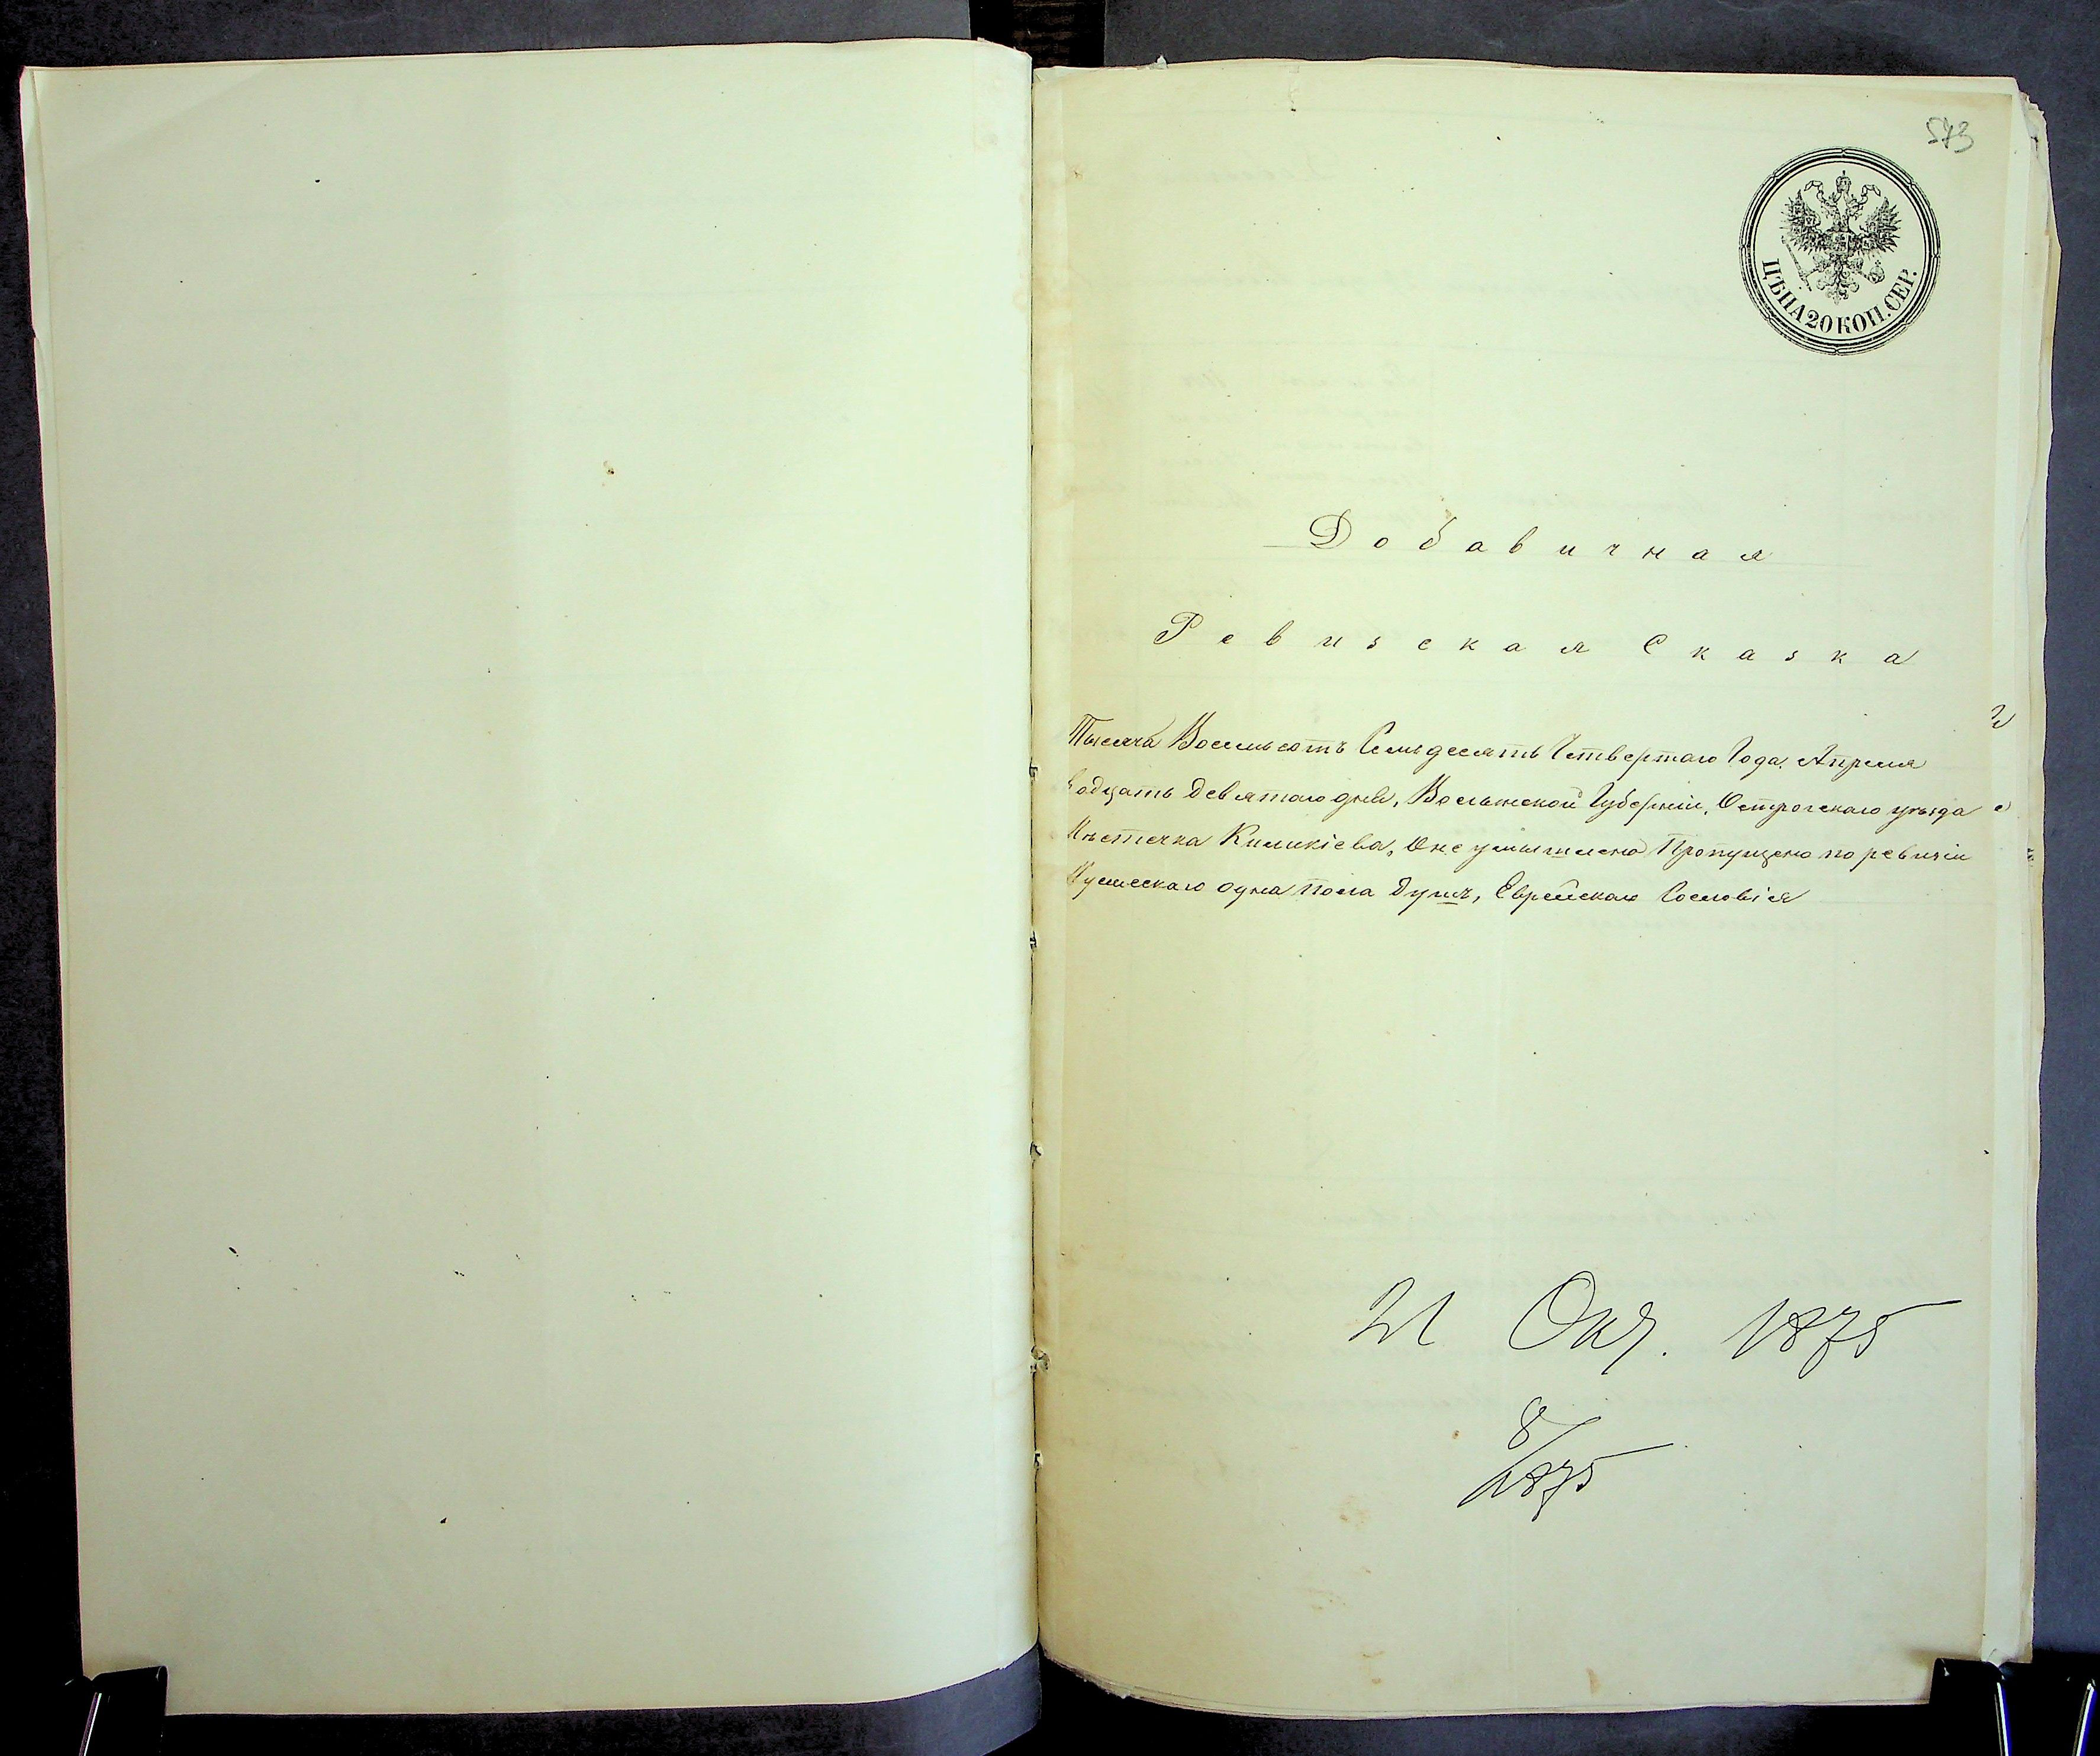 573
ЦѢНА 20 КОП. СЕР.
Добавичная
Ревизская Сказка
Тысяча Восемьсотъ Семьдесятъ Четвертаго Года Апреля
вадцать Девятаго дня, Волынской Губерніи, Острогскаго уѣзда
Мѣстечка Киликіева, О не умышлено Пропущено по ревизіи
Мужескаго одна пола душъ, Еврейскаго Сословія
21 Окт. 1875
8/1875